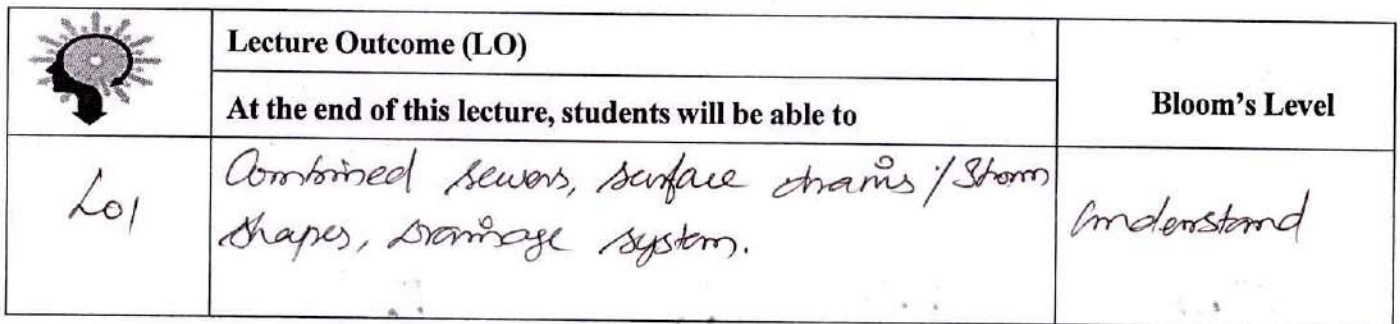 Lecture Outcome (LO)
At the end of this lecture, students will be able to
Bloom's Level
LO1
Combined sewers, surface drains / Storm
shapes, Drainage system.
Understand